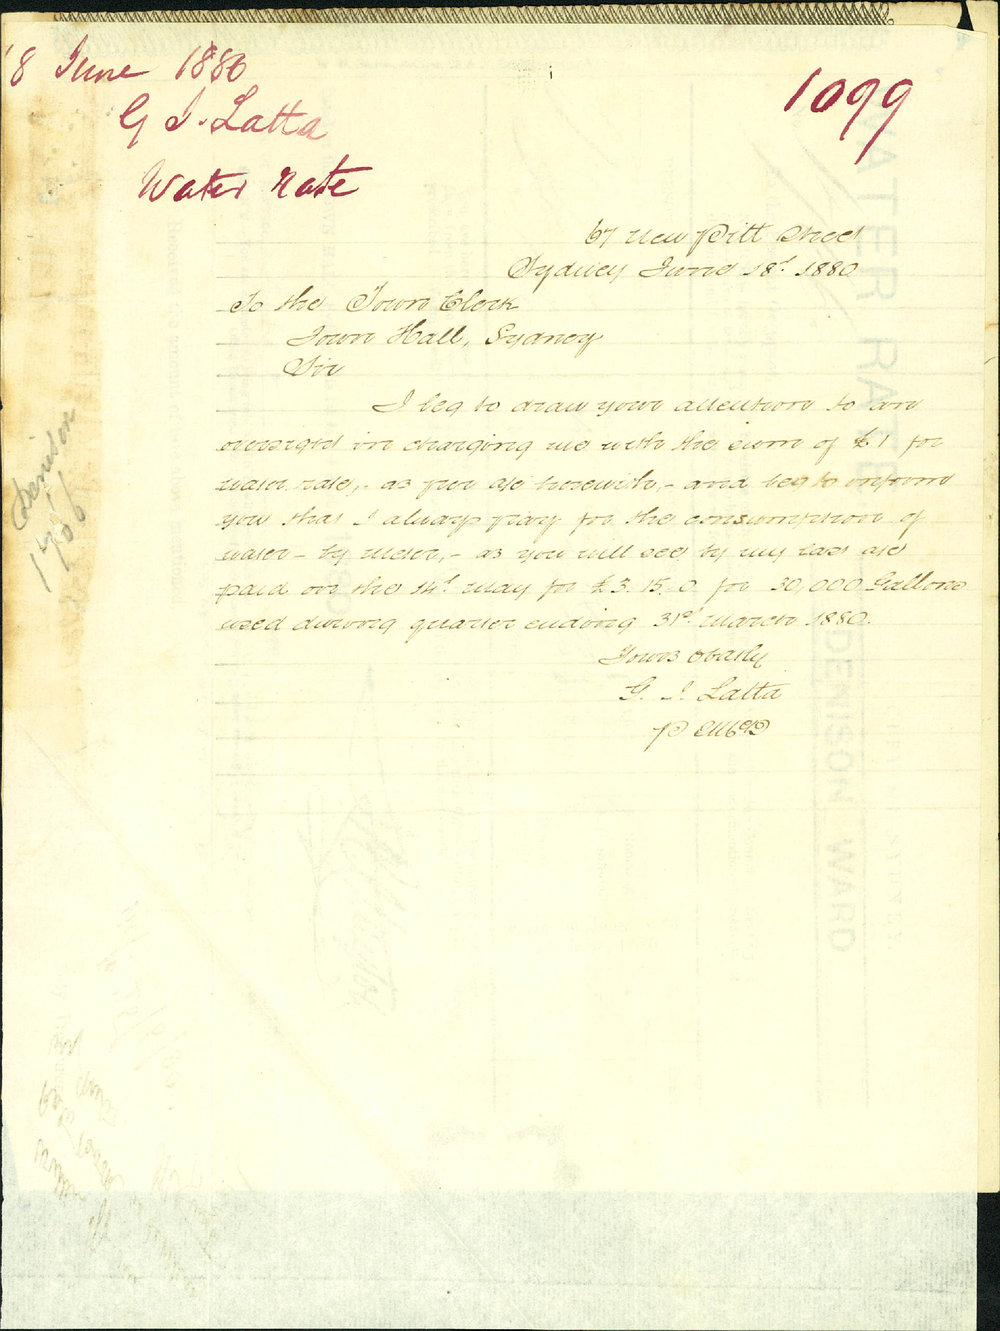 18 June 1880
G J. Latta
Water Rate
1099
67 New Pitt Street
Sydney June 18th 1880
To the Town Clerk
Town Hall, Sydney
Sir
I beg to draw your attention to an
oversight in charging me with the sum of £1 for
water rate, - as per a/c herewith, - and beg to inform
you that I always pay for the consumption of
water - by meter, - as you will see by my last a/c
paid on the 14th May for £3.15.0 for 30,000 Gallons
used during quarter ending 31st March 1880.
Yours Obdtly
G. J. Latta
Denison
1766
WATER RATE
DENISON WARD